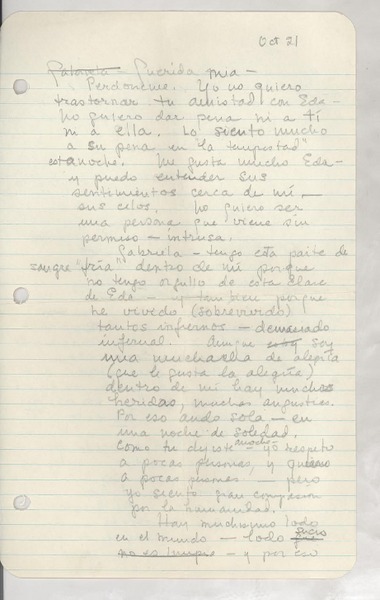 Oct 21
Querida mia -
Perdoneme. Yo no quiero
trastornar tu amistad con Eda -
No quiero dar pena ni a tí
ni a ella. Lo siento mucho
a su pena en la "tempestad"
esta noche. Me gusta mucho Eda -
y puedo entender sus
sentimientos cerca de mí -
sus celos. No quiero ser
una persona que viene sin
permiso - intrusa.
Gabriela - tengo esta parte de
sangre "fría" dentro de mi porque
no tengo orgullo de esta clase
de Eda - y tambien porque
he vivido (sobrevivido)
tantos infiernos - demasiado
infernal. Aunque soy
una muchacha de alegría
(que le gusta la alegría)
dentro de mi hay muchas
heridas, muchas angustias.
Por eso ando sola - en
una noche de soledad.
Como tu dijiste anoche - yo respeto
a pocas personas, y quiero
a pocas personas - pero
yo siento gran compasion
por la humanidad.
Hay muchisimo lodo
en el mundo - lodo sucio
no es limpio - y por eso